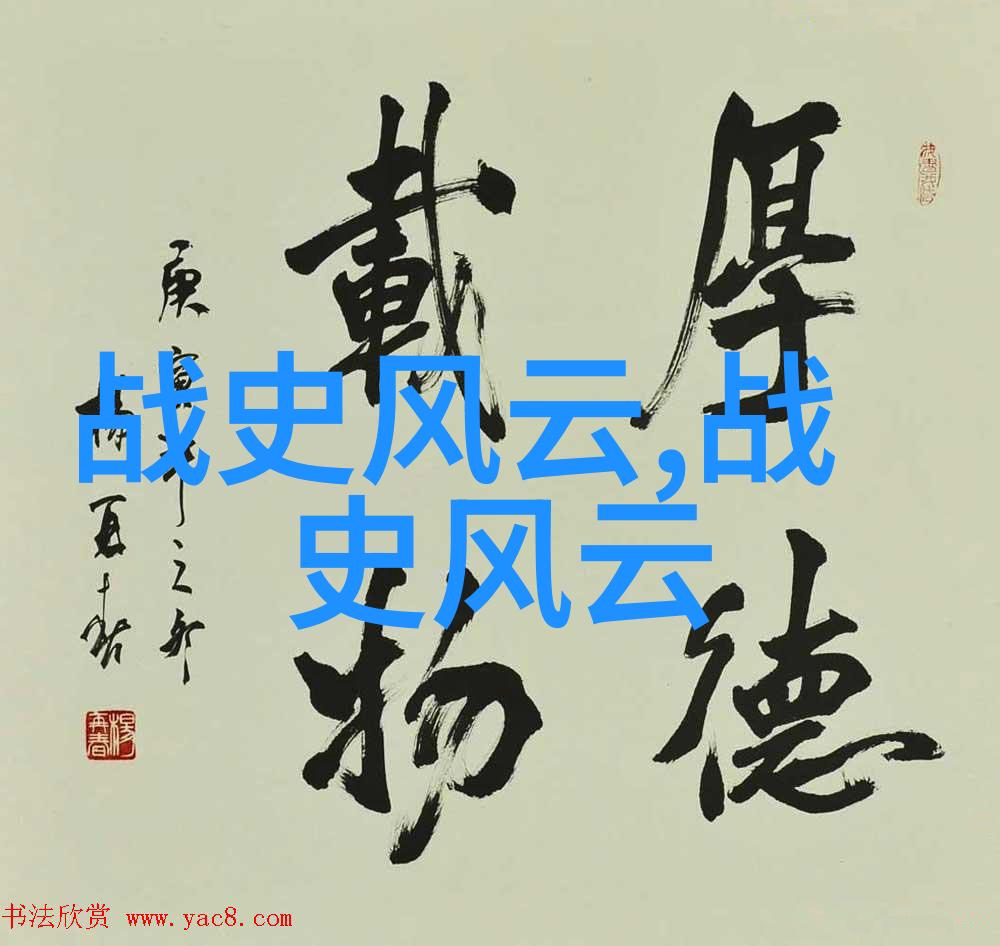 厚德
載物
庚寅年之
楊再春
楊再春
战史风云,战
史风云
书法欣赏 www.yac8.com